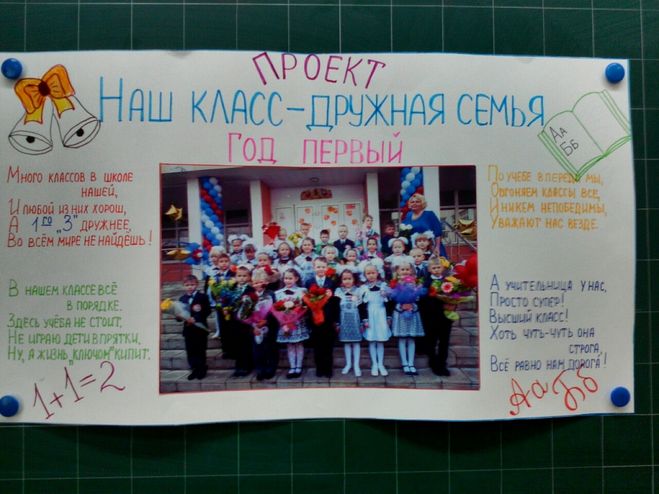 ПРОЕКТ
НАШ КЛАСС-ДРУЖНАЯ СЕМЬЯ
ГОД ПЕРВЫЙ
Аа
Бб
МНОГО КЛАССОВ В ШКОЛЕ
НАШЕЙ,
И ЛЮБОЙ ИЗ НИХ ХОРОШ,
А 1ГО „З" ДРУЖНЕЕ,
ВО ВСЁМ МИРЕ НЕ НАЙДЁШЬ!
В НАШЕМ КЛАССЕ ВСЁ
В ПОРЯДКЕ.
ЗДЕСЬ УЧЁБА НЕ СТОИТ,
НЕ ИГРАЮ ДЕТИ В ПРЯТКИ,
НУ, А ЖИЗНЬ „КЛЮЧОМ" КИПИТ.
1+1=2
ПО УЧЁБЕ ВПЕРЕДИ МЫ,
ОБГОНЯЕМ КЛАССЫ ВСЕ,
И НИКЕМ НЕПОБЕДИМЫ,
УВАЖАЮТ НАС ВЕЗДЕ.
А УЧИТЕЛЬНИЦА У НАС,
ПРОСТО СУПЕР!
ВЫСШИЙ КЛАСС!
ХОТЬ ЧУТЬ-ЧУТЬ ОНА
СТРОГА,
ВСЁ РАВНО НАМ ДОРОГА!
Аа Бб